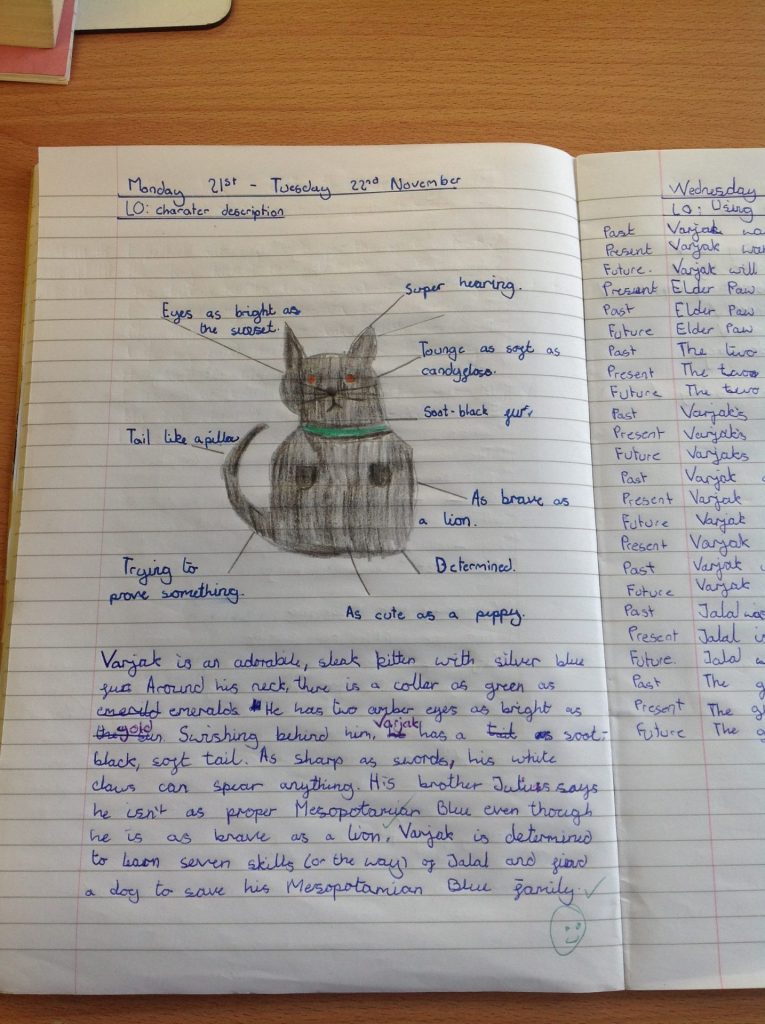 Monday 21st - Tuesday 22nd November
LO: charater description
Super hearing.
Eyes as bright as
the sunset.
Tounge as soft as
candyfloss.
Soot-black fur,
Tail like a pillow
As brave as
a lion.
Trying to
prove something.
Determined.
As cute as a puppy.
Varjak is an adorable, sleak kitten with silver blue
fur Around his neck, there is a collar as green as
emerild emeralds He has two amber eyes as bright as
the gold sun Swishing behind him, Varjak has a tail as soot-
black, soft tail. As sharp as swords, his white
claws can spear anything. His brother Julius says
he isn't as proper Mesopotamian Blue even though
he is as brave as a lion. Varjak is determined
to learn seven skills (or the way) of Jalal and find
a dog to save his Mesopotamian Blue family.
Wednesday
LO: Using
Past Varjak
Present Varjak
Future. Varjak will
Present Elder Paw
Past Elder Paw
Future Elder Paw
Past The two
Present The two
Future The two
Past Varjak's
Present Varjak's
Future Varjaks
Past Varjak
Present Varjak
Future Varjak
Present Varjak
Past Varjak
Future Varjak
Past Jalal was
Present Jalal is
Future. Jalal
Past The
Present The
Future The